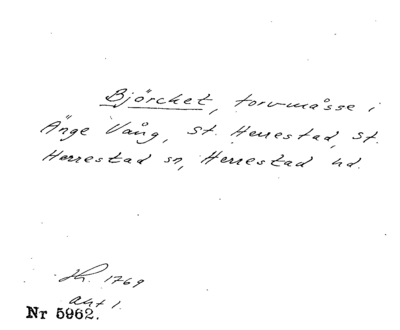 Björcket, torvmåsse i
Änge Vång, St. Herrestad, St.
Herrestad sn, Herrestad hd.
Sk. 1769
akt 1.
Nr 5962.